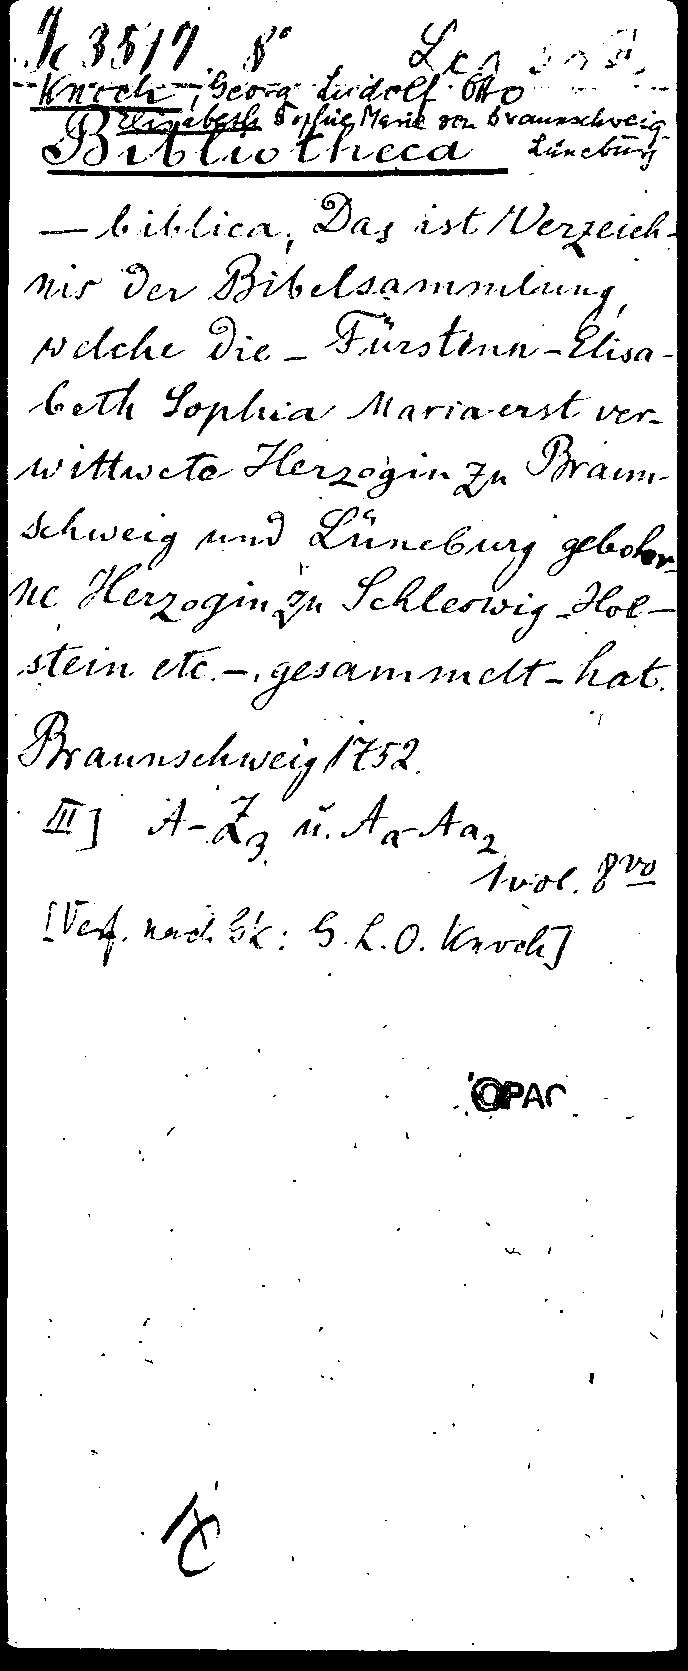 Jc 3517 8°
Knoch, Georg Ludolf Otto
Elisabeth Sophie Marie von Braunschweig-
Lüneburg
Bibliotheca
— biblica, Das ist Verzeich-
nis der Bibelsammlung,
welche die – Fürstinn – Elisa-
beth Sophia Maria erst ver-
wittwete Herzogin zu Braun-
schweig und Lüneburg gebohr-
ne Herzogin zu Schleswig-Hol-
stein etc. –, gesammelt – hat.
Braunschweig 1752.
III] A-Z3 u. Aa-Aa2
1 vol. 8vo
[Verf. nach GK: G. L. O. Knoch]
OPAC